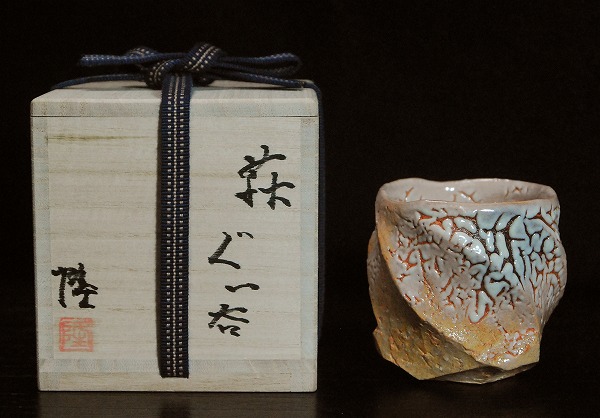 萩ぐい呑
陸